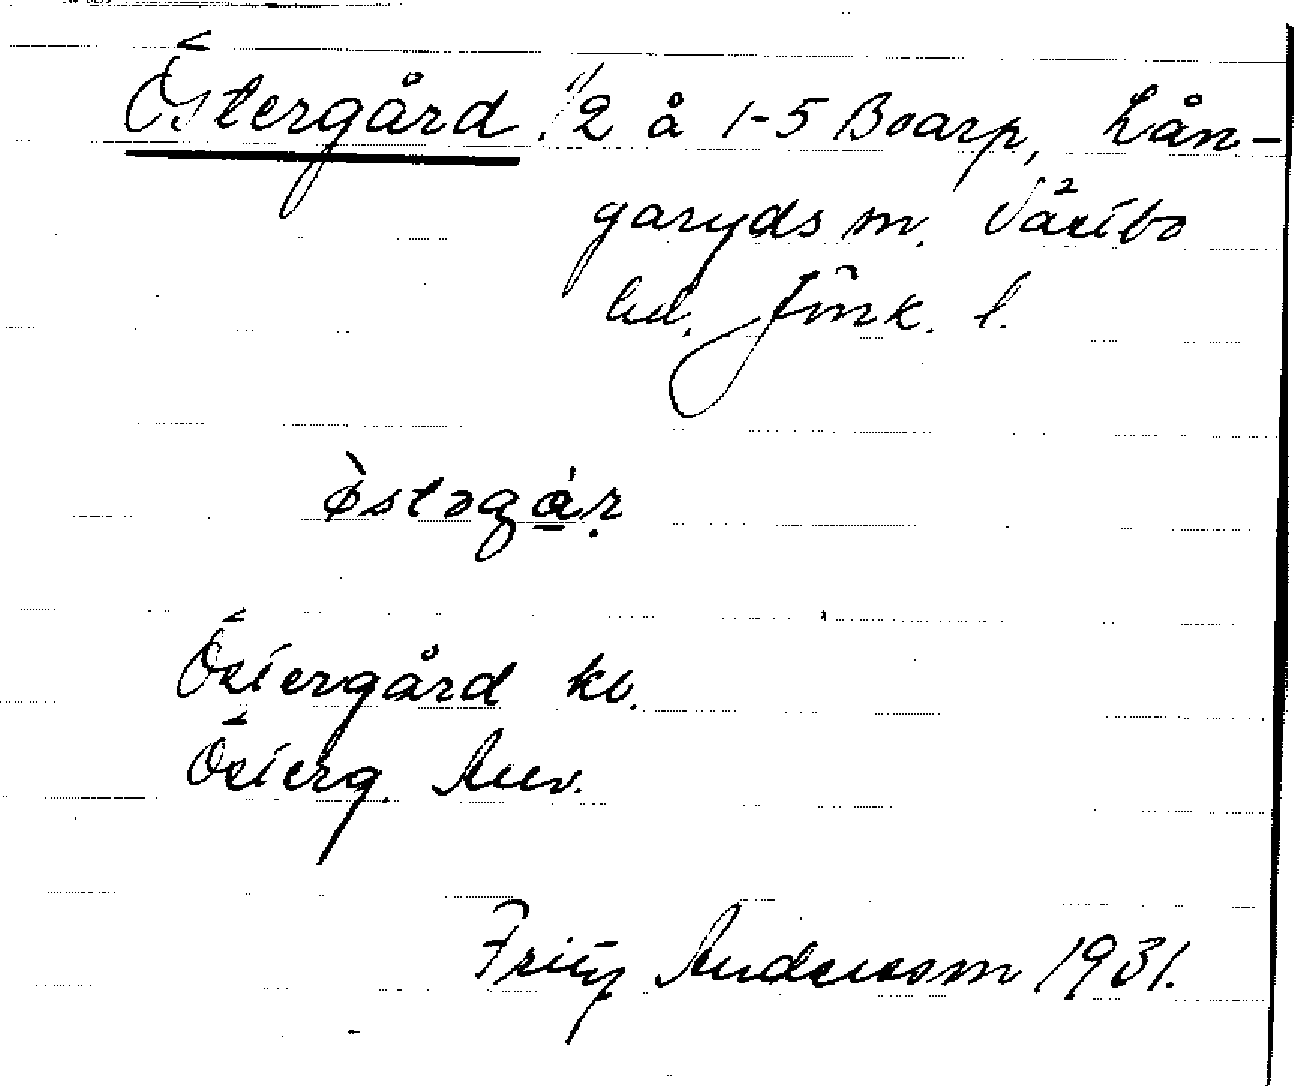 Östergård 1/2 å 1-5 Boarp, Lån-
garyds sn. Västbo
hd. Jönk. l.
östəgár
Östergård kb.
Österg. Anv.
Fritz Andersson 1931.